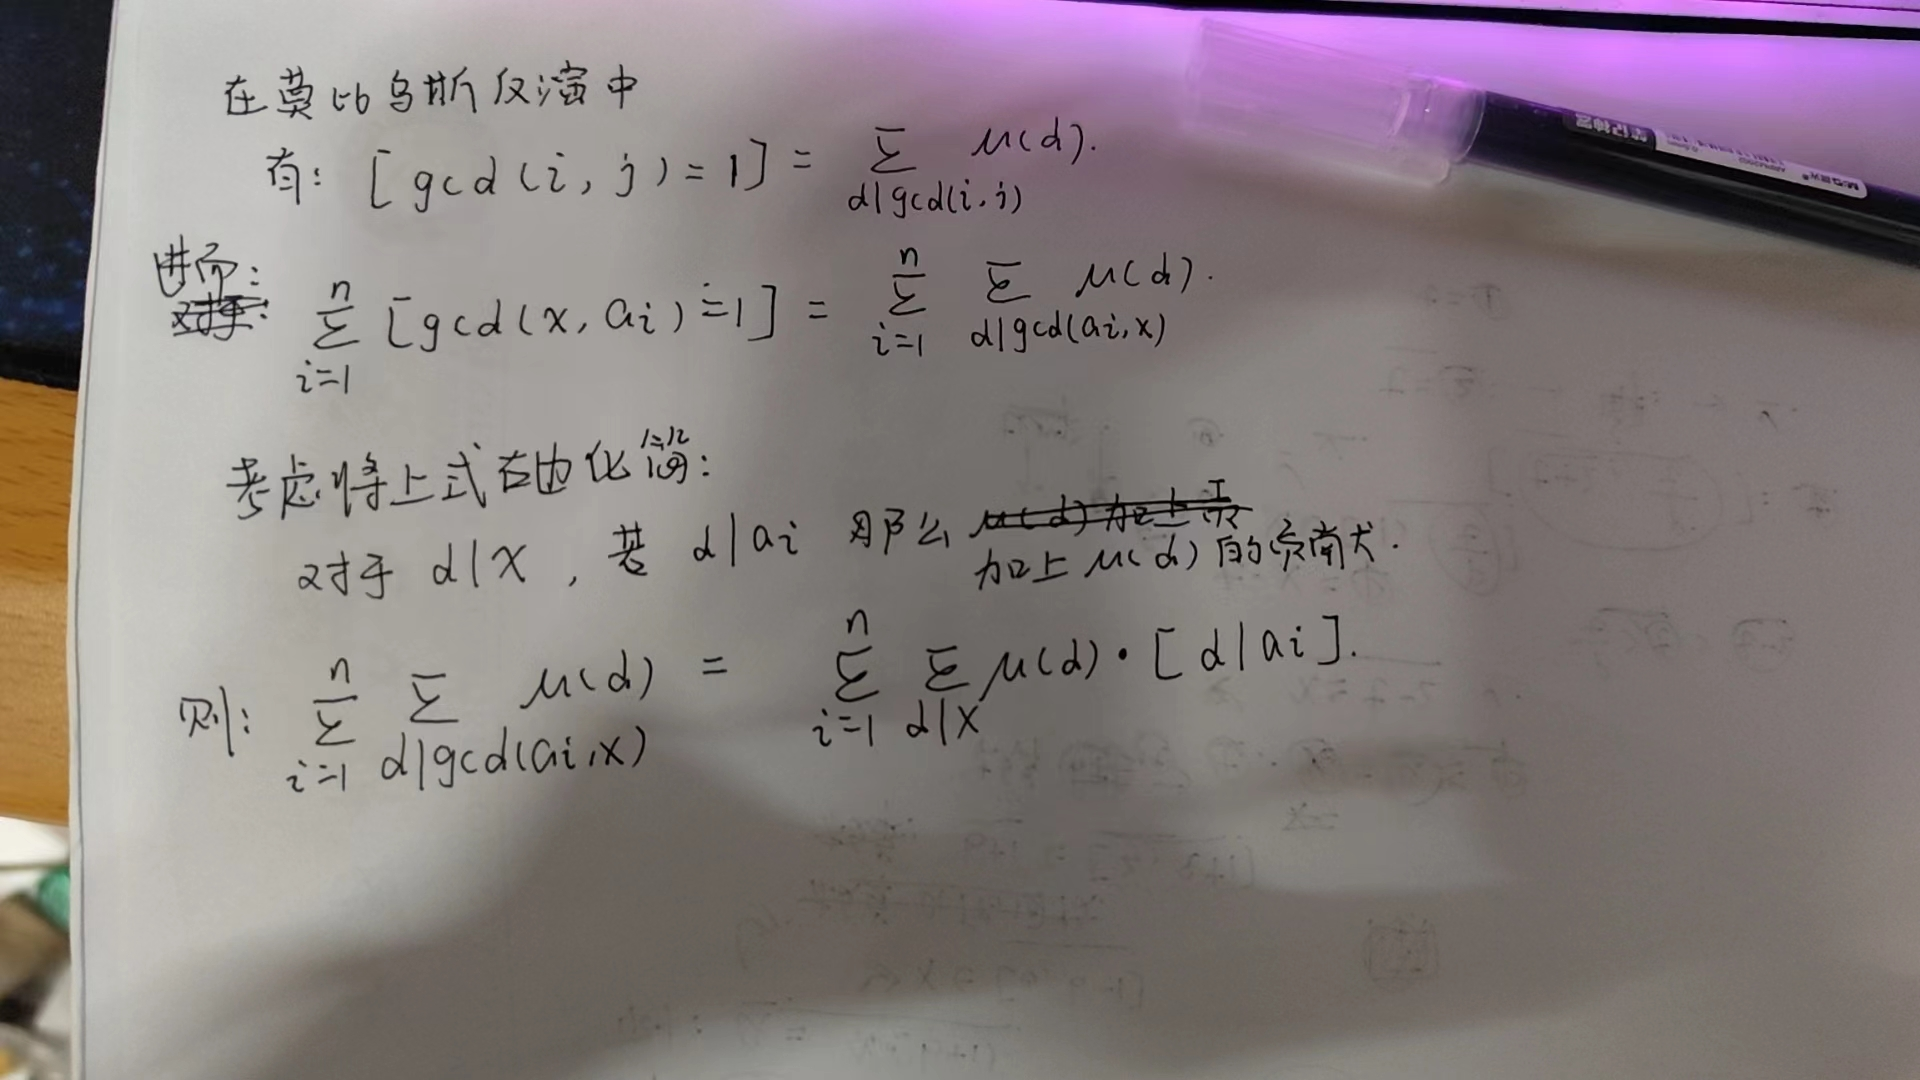 在莫比乌斯反演中
有: [gcd(i, j)=1] = Σ_{d|gcd(i,j)} μ(d).
进而:
Σ_{i=1}^{n} [gcd(x, ai)=1] = Σ_{i=1}^{n} Σ_{d|gcd(ai,x)} μ(d).
考虑将上式右边化简:
对于 d|x, 若 d|ai 那么
加上 μ(d) 的贡献.
则: Σ_{i=1}^{n} Σ_{d|gcd(ai,x)} μ(d) = Σ_{i=1}^{n} Σ_{d|x} μ(d)·[d|ai].